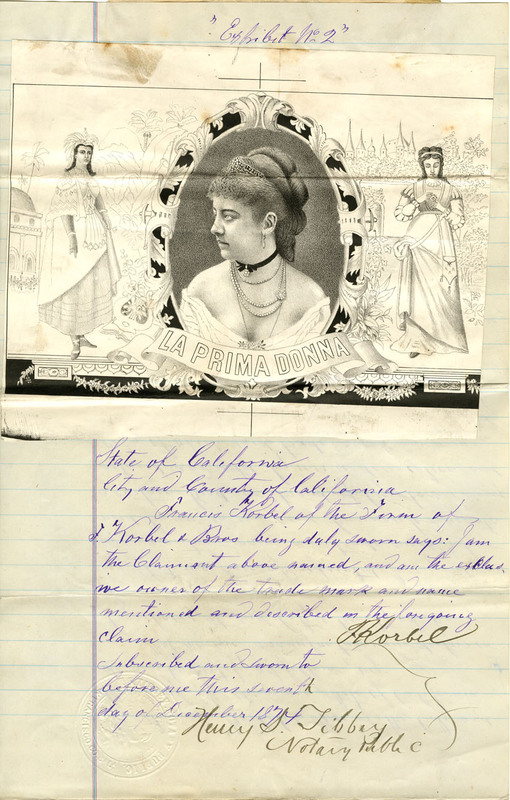 "Exhibit No 2"
LA PRIMA DONNA
State of California
City and County of California
Francis Korbel of the Firm of
F. Korbel & Bros being duly sworn says: I am
the Claimant above named, and am the exclus
ive owner of the trade mark and name
mentioned and described in the foregoing
claim
F Korbel
Subscribed and sworn to
before me this seventh
day of December 1874
Henry S. Tibbey
Notary Public